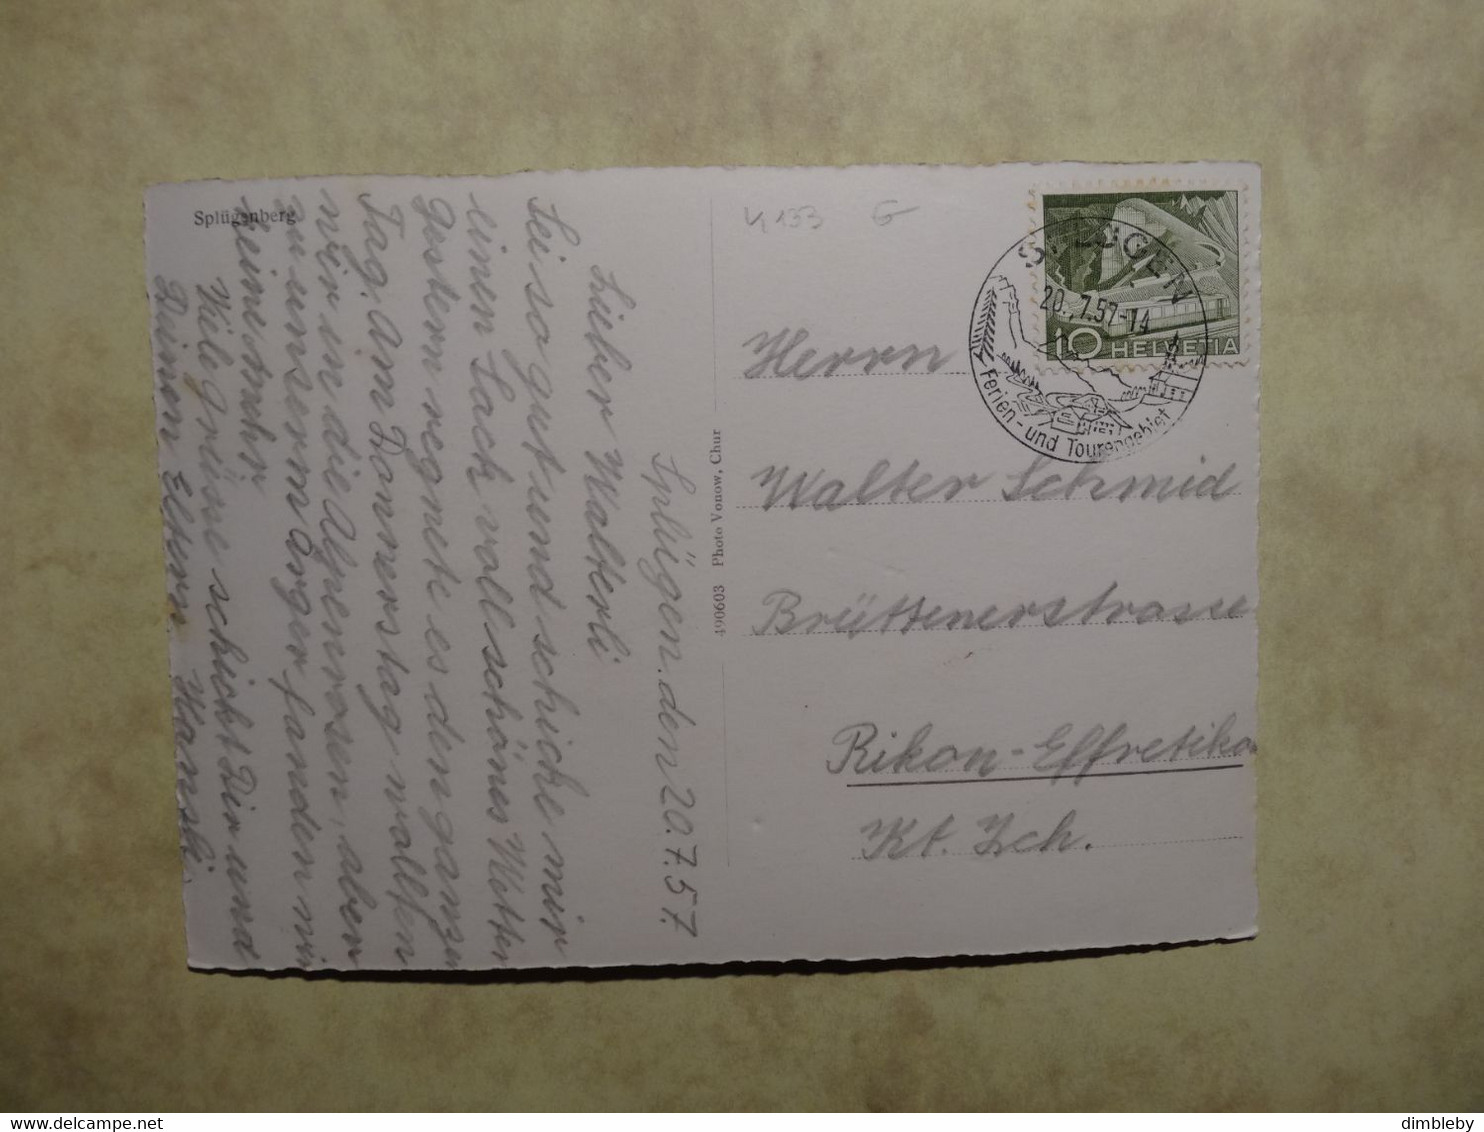 Splügenberg
Splügen. den 20.7.57.
Lieber Walterli
Sei so gut und schicke mir
einen Sack voll schönes Wetter
Gestern regnete es den ganzen
Tag. Am Donnerstag wollten
wir in die Alpenrosen, aber
zu unserm Ärger fanden wir
keine mehr.
Viele Grüsse schickt Dir und
Deinen Eltern Hansli
490603 Photo Vonow, Chur
4133 G
SPLÜGEN
20.7.57-14
Ferien- und Tourengebiet
10 HELVETIA
Herrn
Walter Schmid
Brüttenerstrasse
Rikon-Effretikon
Kt. Zch.
dimbleby